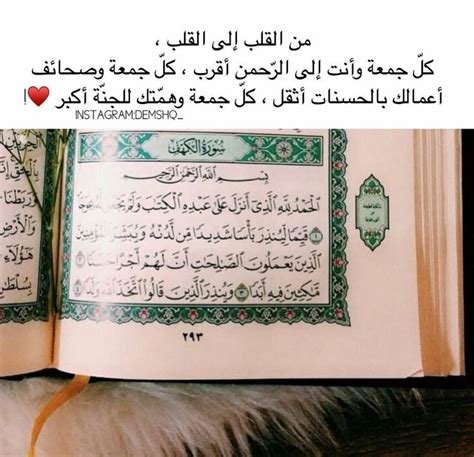 من القلب إلى القلب ،
كلّ جمعة وأنت إلى الرّحمن أقرب ، كلّ جمعة وصحائف
أعمالك بالحسنات أثقل ، كلّ جمعة وهمّتك للجنّة أكبر ♥️!
INSTAGRAM:DEMSHQ_
سُورَةُ الكَهْفِ
بِسْمِ اللَّهِ الرَّحْمَٰنِ الرَّحِيمِ
الْحَمْدُ لِلَّهِ الَّذِي أَنزَلَ عَلَىٰ عَبْدِهِ الْكِتَٰبَ وَلَمْ يَجْعَل لَّهُۥ عِوَجَا
١ قَيِّمًا لِّيُنذِرَ بَأْسًا شَدِيدًا مِّن لَّدُنْهُ وَيُبَشِّرَ الْمُؤْمِنِينَ
الَّذِينَ يَعْمَلُونَ الصَّٰلِحَٰتِ أَنَّ لَهُمْ أَجْرًا حَسَنًا ٢
مَّٰكِثِينَ فِيهِ أَبَدًا ٣ وَيُنذِرَ الَّذِينَ قَالُوا اتَّخَذَ اللَّهُ وَلَدًا ٤
٢٩٣
وَالْأَرْضِ
هَٰؤُلَاءِ
بِسُلْطَٰنٍ